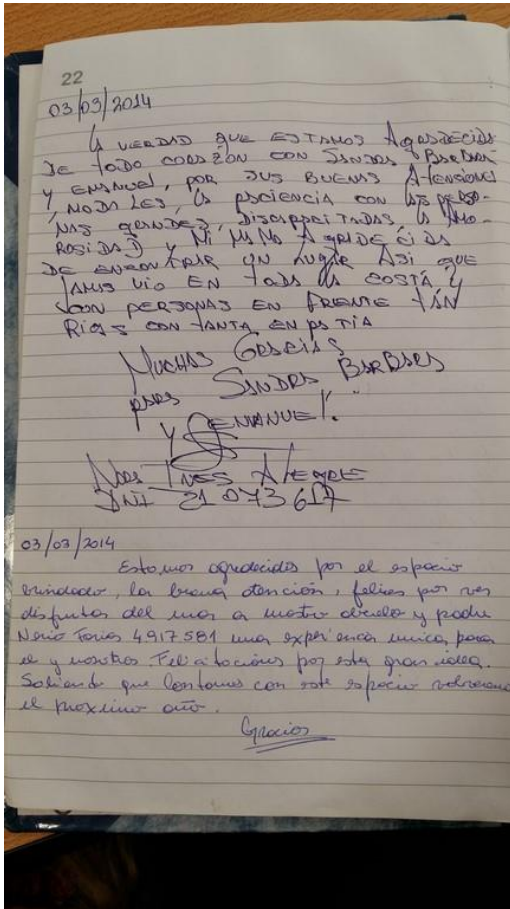 22
03/03/2014
La VERDAD QUE ESTAMOS AgraDECIDOS
DE TODO CORAZÓN CON SANDRA, BARBARA
Y EMANUEL, POR SUS BUENAS ATENSIONES
, MODALES, la PACIENCIA CON LAS PERSO-
NAS GRANDES, DISCAPACITADAS, la AMO-
ROSIDAD y Mi MAMÁ AGRIDECIDA
DE ENCONTRAR UN LUGAR ASI QUE
JAMAS VIO EN TODA la COSTA, Y
CON PERSONAS EN FRENTE TAN
RICAS CON TANTA EMPATIA
MUCHAS GRACIAS
PARA SANDRA BARBARA
Y EMANUEL.
INES ALEGRE
DNI 21 073 617
03/03/2014
Estamos agradecidos por el espacio
brindado, la buena atención, felices por ver
disfrutar del mar a nuestro abuelo y padre
Nerio Farias 4917581 una experiencia unica para
el y nosotros. Felicitaciones por esta gran idea.
Sabiendo que contamos con este espacio volveremos
el proximo año.
Gracias